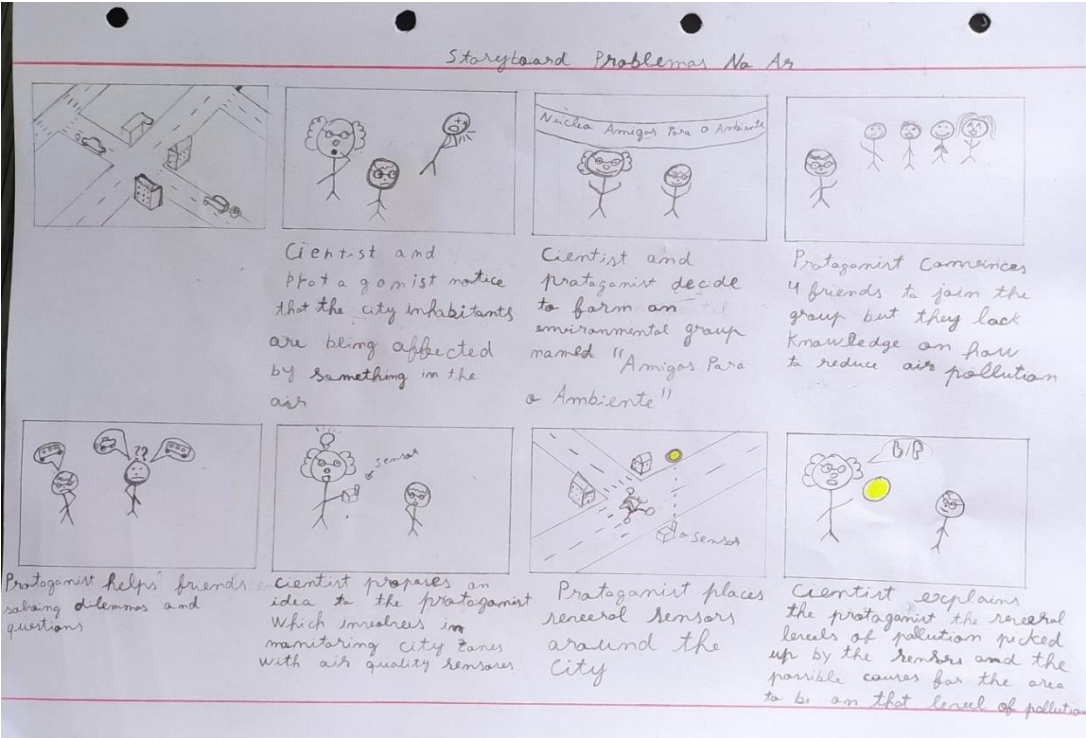 Storyboard Problemas No Ar
Núcleo Amigos Para O Ambiente
Cientist and
protagonist notice
that the city inhabitants
are being affected
by something in the
air
Cientist and
protaganist decide
to form an
environmental group
named "Amigos Para
o Ambiente"
Protaganist Convinces
4 friends to join the
group but they lack
Knowledge on how
to reduce air pollution
??
sensor
sensor
Protaganist helps friends
solving dilemmas and
questions
Cientist proposes an
idea to the protaganist
which involves in
monitoring city zones
with air quality sensores
Protaganist places
several sensors
around the
city
Cientist explains
the protaganist the several
levels of pollution picked
up by the sensors and the
possible causes for the area
to be on that level of pollution